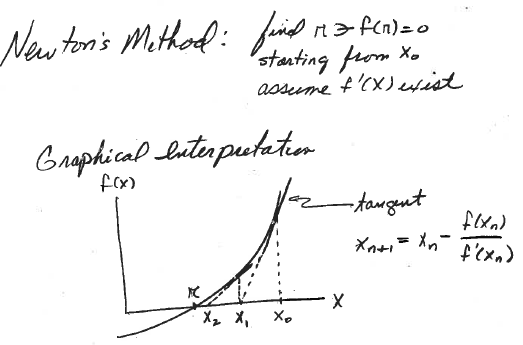 Newton's Method: find r ∋ f(r)=0
starting from x₀
assume f'(x) exist
Graphical Interpretation
f(x)
tangent
xₙ₊₁ = xₙ - f(xₙ)/f'(xₙ)
r
x
x₂ x₁ x₀